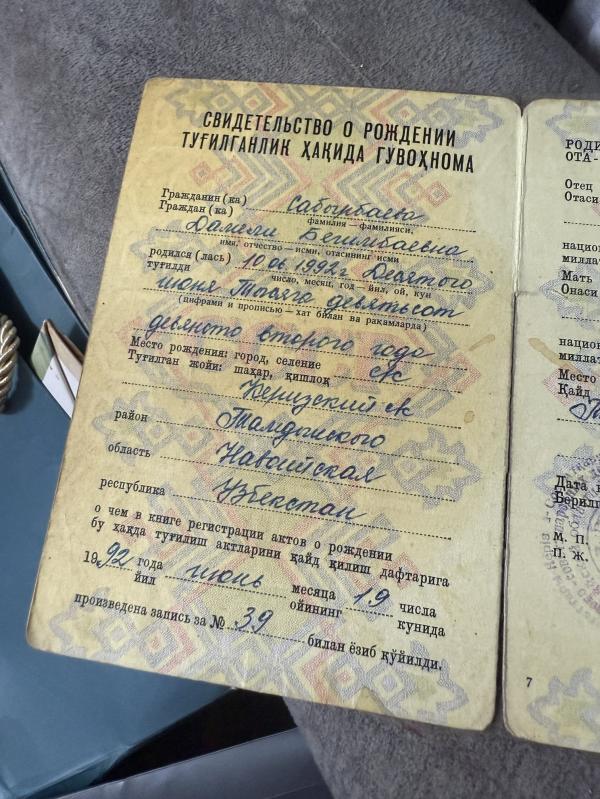 СВИДЕТЕЛЬСТВО О РОЖДЕНИИ
ТУҒИЛГАНЛИК ҲАҚИДА ГУВОҲНОМА
Гражданин (ка)
Граждан (ка) Сабырбаева
фамилия — фамилияси.
Далели Бегимбаевна
имя, отчество — исми, отасининг исми
родился (лась) 10 06 1992 г Десятого
туғилди
число, месяц, год — йил, ой, кун
июня Тысяча девятьсот
(цифрами и прописью — хат билан ва рақамларда)
девяносто второго года
Место рождения: город, селение
Туғилган жойи: шаҳар, қишлоқ
Керизский
район Тамдынского
область Навоийская
республика Узбекстан
о чем в книге регистрации актов о рождении
бу ҳақда туғилиш актларини қайд қилиш дафтарига
1992 года июнь месяца 19 числа
йил ойининг кунида
произведена запись за № 39 билан ёзиб қўйилди.
РОДИ
ОТА-
Отец
Отаси
национ
миллат
Мать
Онаси
национ
миллат
Место
Қайд
Дата
Берилг
М. П.
П. Ж.
7